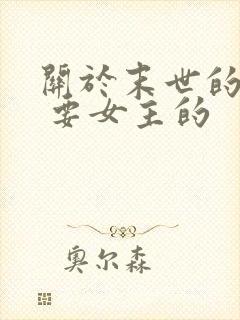 關於末世的
要女主的
奥尔森